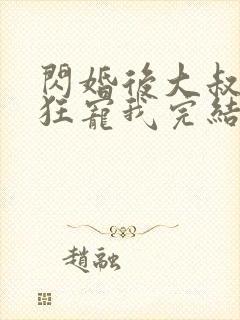 閃婚後大叔
狂寵我完結
趙融